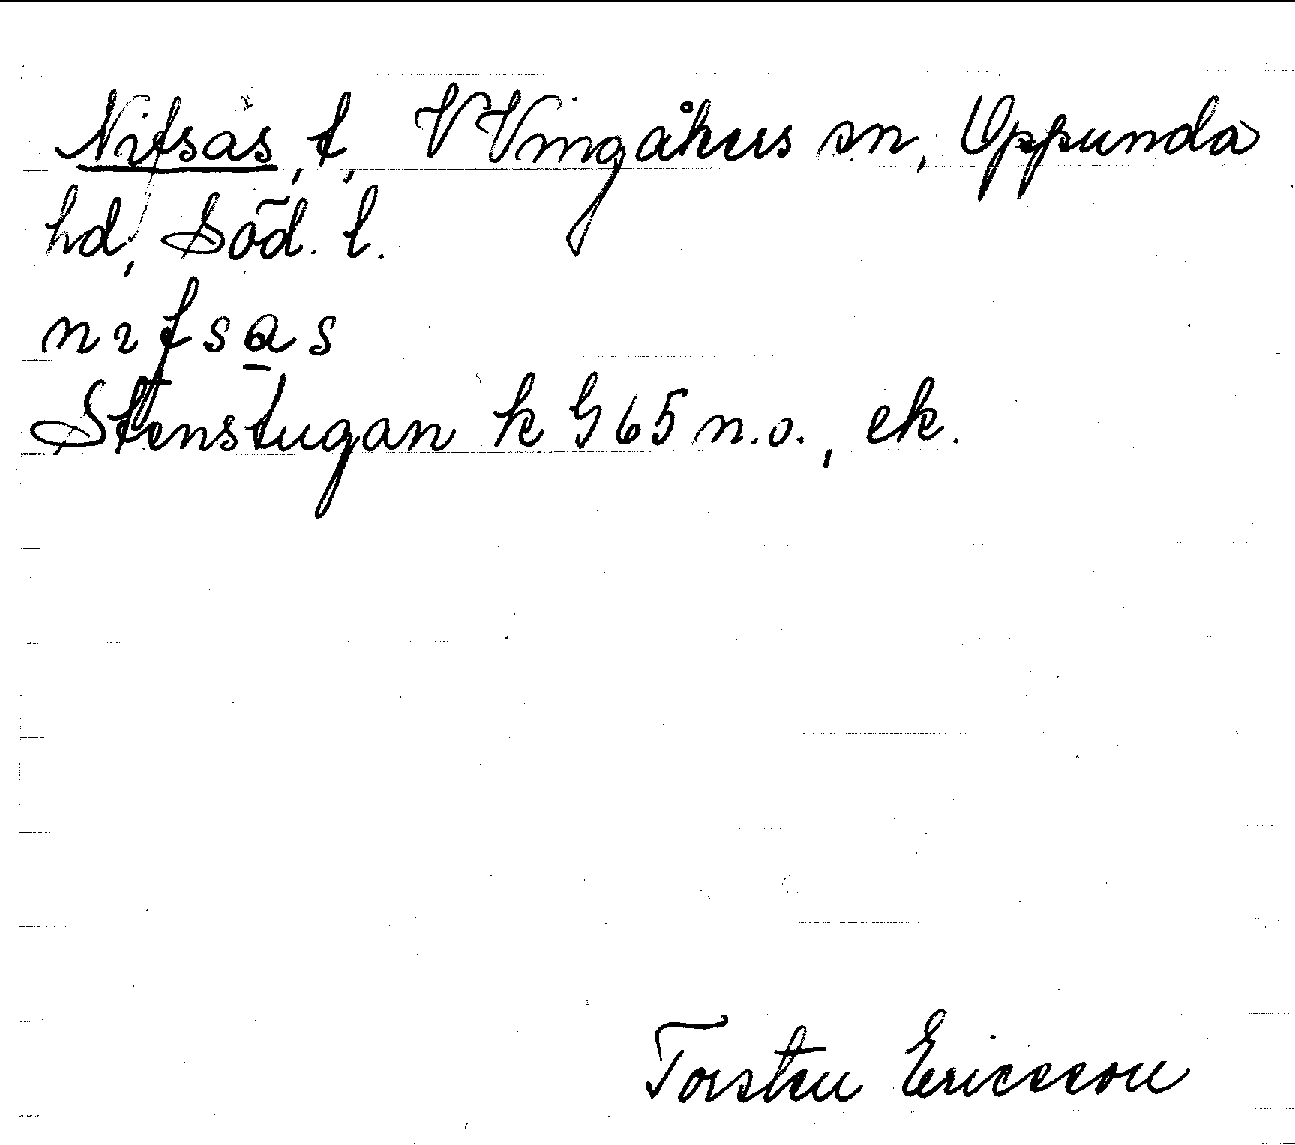 Nifsas, t, V Vingåkers sn, Oppunda
hd, Söd. l.
nıfsas
Stenstugan k G 65 n.o., ek.
Torsten Ericsson